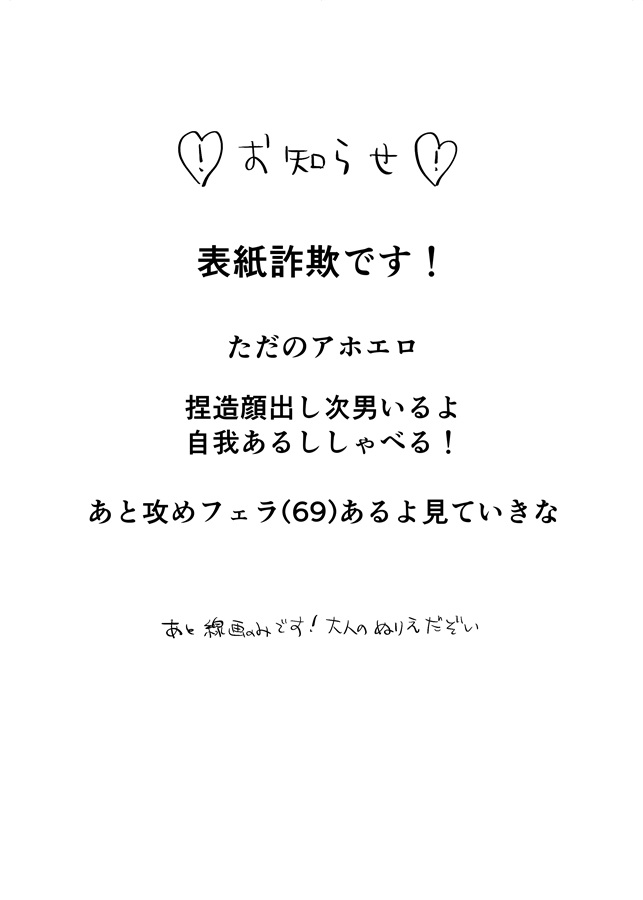 ! お知らせ !
表紙詐欺です！
ただのアホエロ
捏造顔出し次男いるよ
自我あるししゃべる！
あと攻めフェラ(69)あるよ見ていきな
あと線画のみです！大人のぬりえだぞい